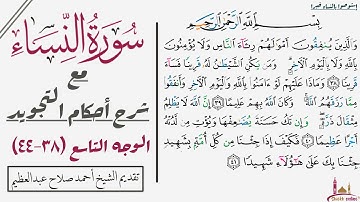 استوصوا بالنساء خيرا
سورة النساء
مع
شرح أحكام التجويد
الوجه التاسع (٣٨-٤٤)
تقديم الشيخ أحمد صلاح عبدالعظيم
بِسْمِ اللَّهِ الرَّحْمَٰنِ الرَّحِيمِ
وَالَّذِينَ يُنفِقُونَ أَمْوَالَهُمْ رِئَاءَ النَّاسِ وَلَا يُؤْمِنُونَ
بِاللَّهِ وَلَا بِالْيَوْمِ الْآخِرِ ۗ وَمَن يَكُنِ الشَّيْطَانُ لَهُ قَرِينًا فَسَاءَ
قَرِينًا ٣٨ وَمَاذَا عَلَيْهِمْ لَوْ آمَنُوا بِاللَّهِ وَالْيَوْمِ الْآخِرِ وَأَنفَقُوا
مِمَّا رَزَقَهُمُ اللَّهُ ۚ وَكَانَ اللَّهُ بِهِمْ عَلِيمًا ٣٩ إِنَّ اللَّهَ لَا يَظْلِمُ
مِثْقَالَ ذَرَّةٍ ۖ وَإِن تَكُ حَسَنَةً يُضَاعِفْهَا وَيُؤْتِ مِن لَّدُنْهُ
أَجْرًا عَظِيمًا ٤٠ فَكَيْفَ إِذَا جِئْنَا مِن كُلِّ أُمَّةٍ بِشَهِيدٍ
وَجِئْنَا بِكَ عَلَىٰ هَٰؤُلَاءِ شَهِيدًا ٤١